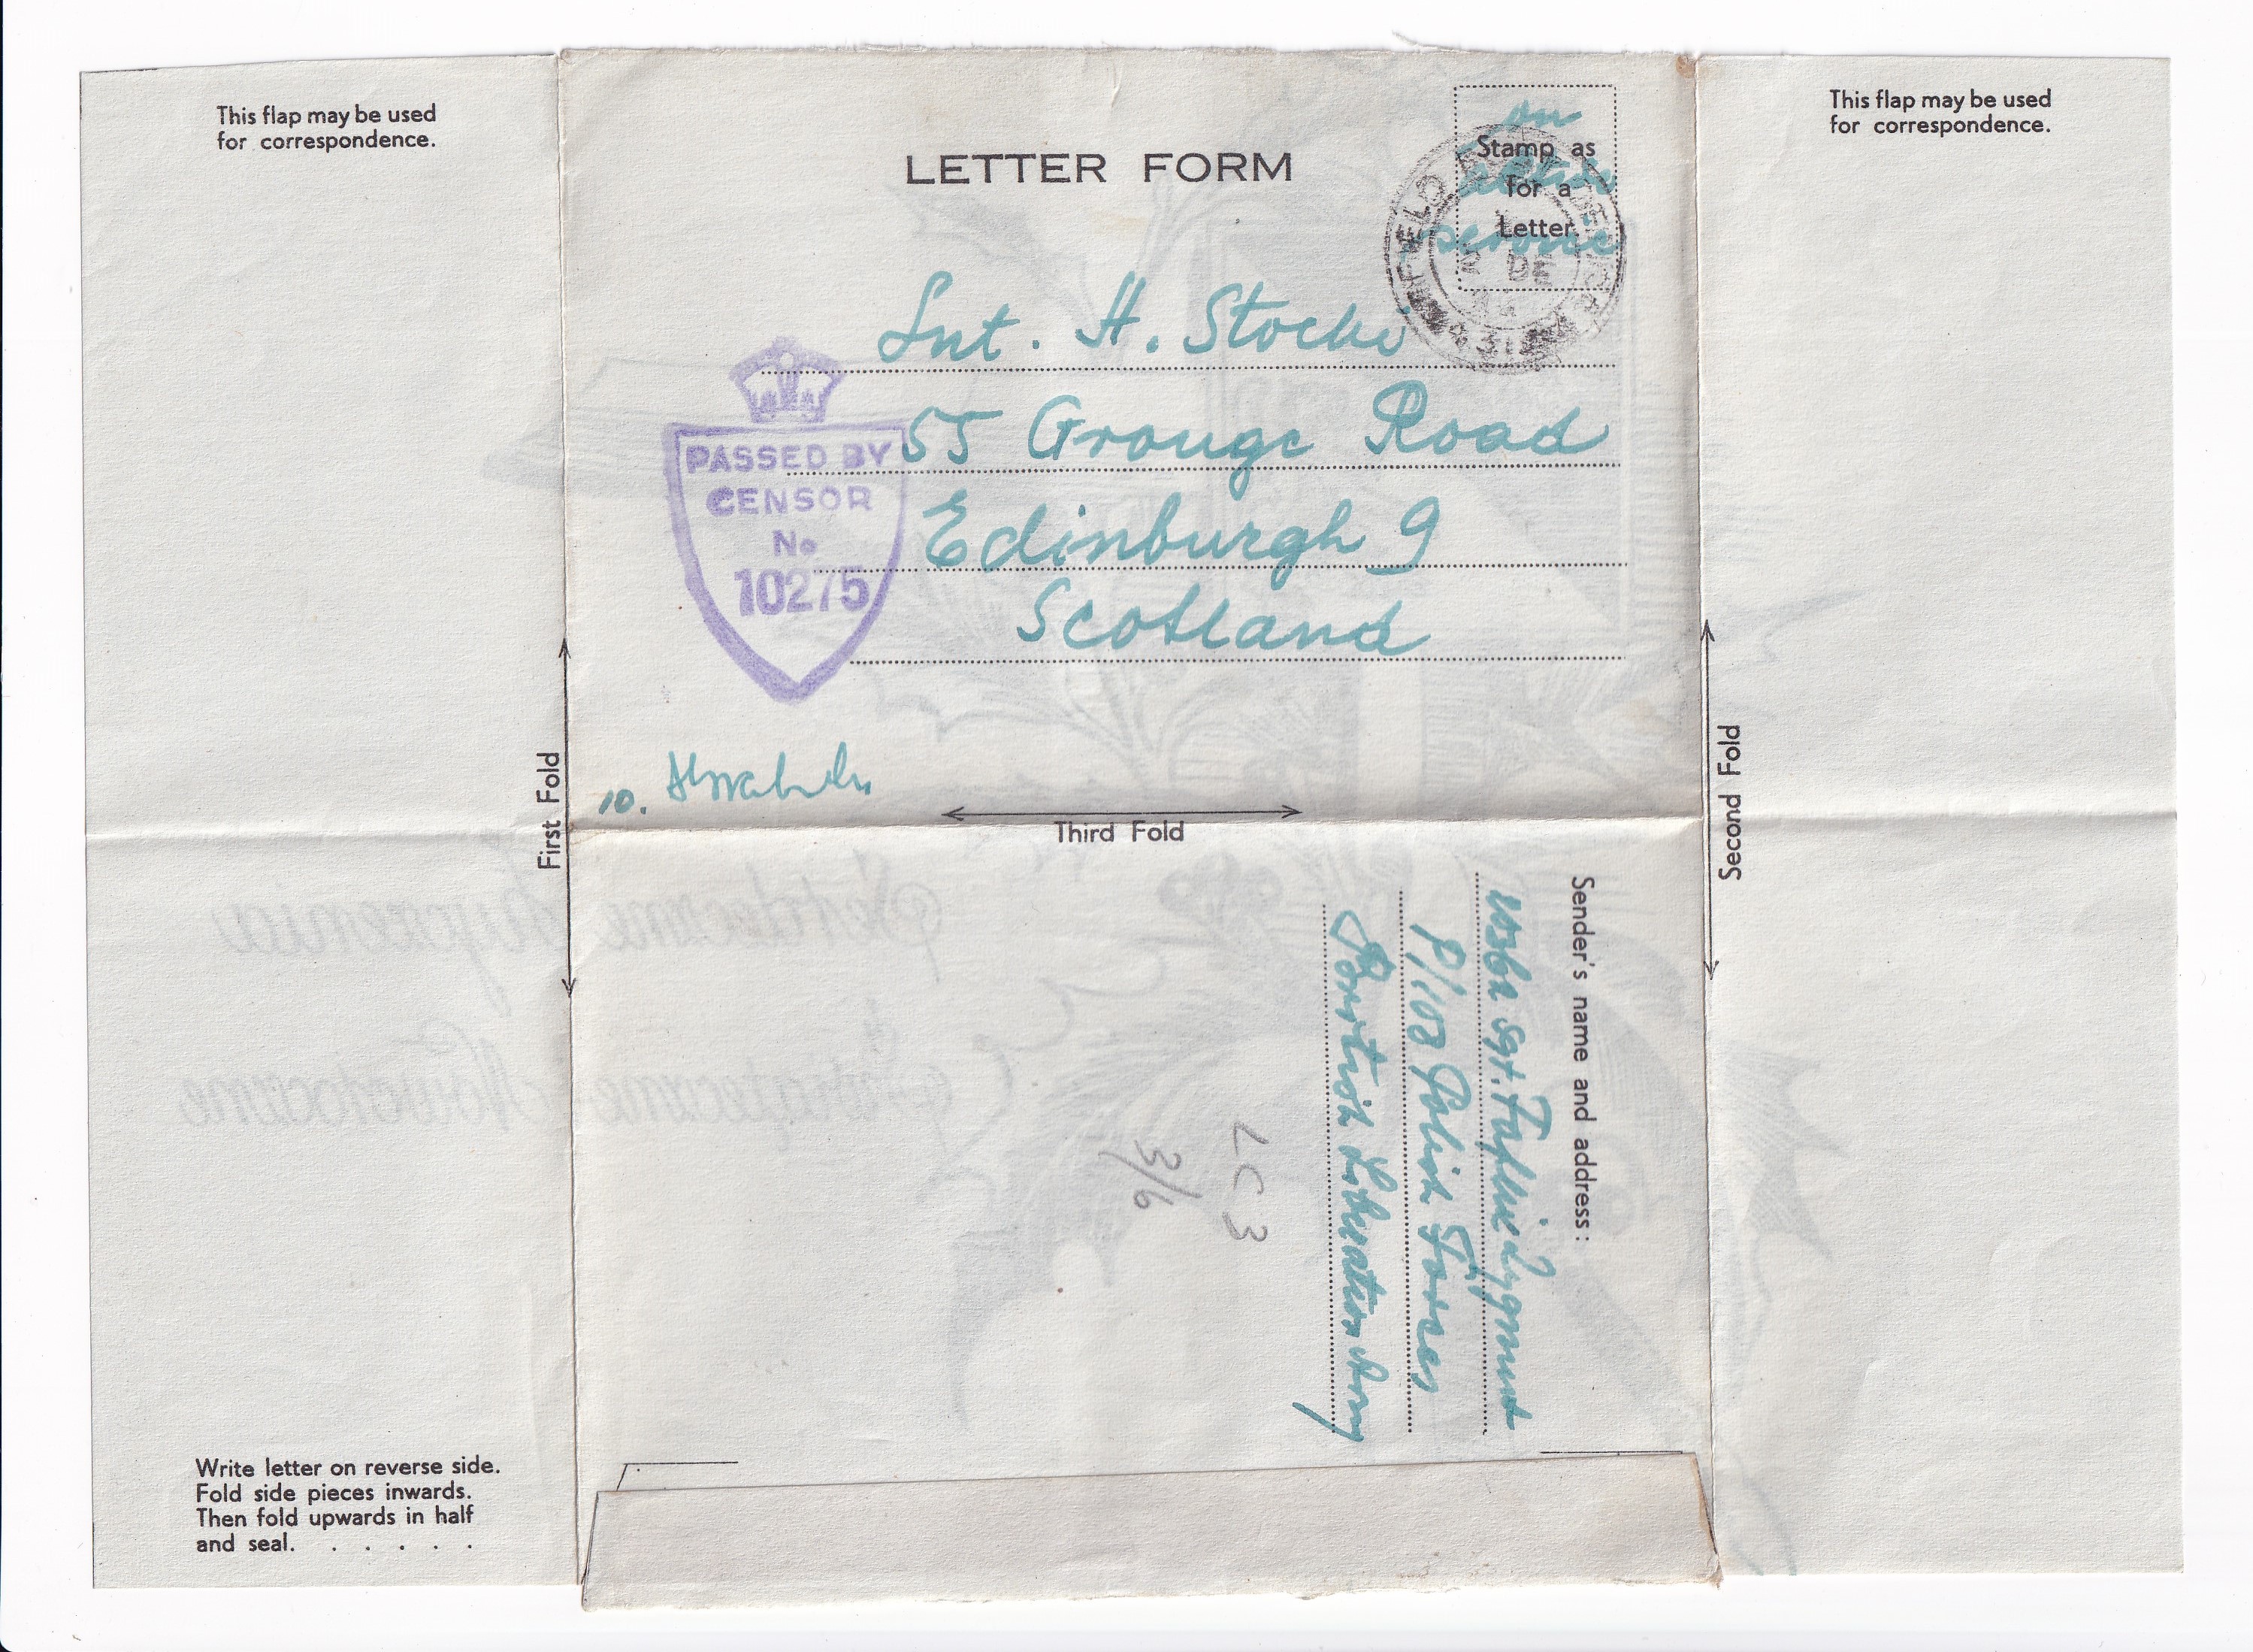 This flap may be used
for correspondence.
LETTER FORM
on
active
service
Stamp as
for a
Letter.
FIELD
2 DE
44
This flap may be used
for correspondence.
Lnt. H. Stocki
55 Grange Road
Edinburgh 9
Scotland
PASSED BY
CENSOR
No
10275
10.
First Fold
Third Fold
Second Fold
Sender's name and address:
Sgt.
P/102 Polish Forces
Brritish Liberation Army
LC 3
3/6
Serdeczne Życzenia
Świąteczne Noworoczne
Write letter on reverse side.
Fold side pieces inwards.
Then fold upwards in half
and seal. . . . . .